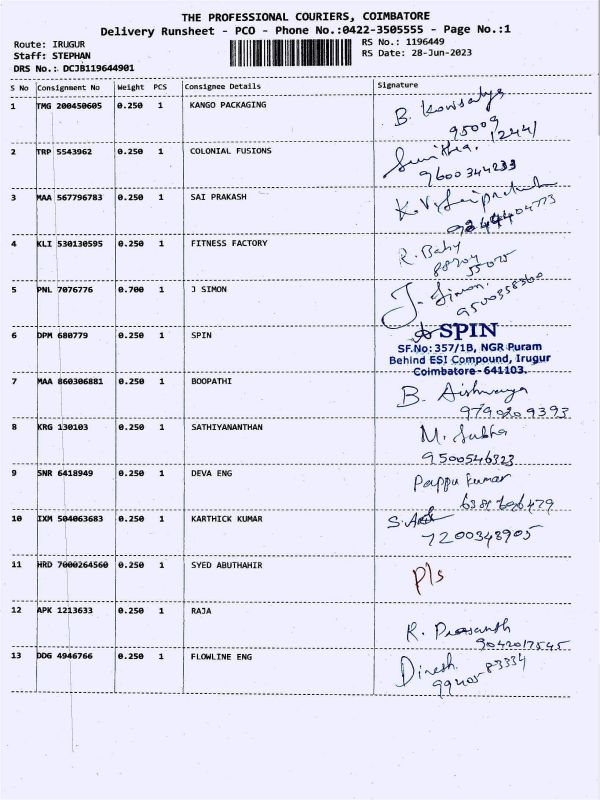 THE PROFESSIONAL COURIERS, COIMBATORE
Delivery Runsheet - PCO - Phone No.:0422-3505555 - Page No.:1
Route: IRUGUR RS No.: 1196449
Staff: STEPHAN RS Date: 28-Jun-2023
DRS No.: DCJB119644901
S No Consignment No Weight PCS Consignee Details Signature
1 TMG 200450605 0.250 1 KANGO PACKAGING B.
95009
12441
2 TRP 5543962 0.250 1 COLONIAL FUSIONS
9600344233
3 MAA 567796783 0.250 1 SAI PRAKASH
4 KLI 530130595 0.250 1 FITNESS FACTORY R. Baby
5 PNL 7076776 0.700 1 J SIMON J. Simon.
9500358360
6 DPM 680779 0.250 1 SPIN SPIN
SF.No: 357/1B, NGR Puram
Behind ESI Compound, Irugur
Coimbatore - 641103.
7 MAA 860306881 0.250 1 BOOPATHI B. Aishwarya
9790209393
8 KRG 130103 0.250 1 SATHIYANANTHAN M. Subha
9500546323
9 SNR 6418949 0.250 1 DEVA ENG Pappu kumar
10 IXM 504063683 0.250 1 KARTHICK KUMAR S.
7200348905
11 HRD 7000264560 0.250 1 SYED ABUTHAHIR Pls
12 APK 1213633 0.250 1 RAJA R. Prasanth
9042017545
13 DDG 4946766 0.250 1 FLOWLINE ENG Dinesh
99405 83334